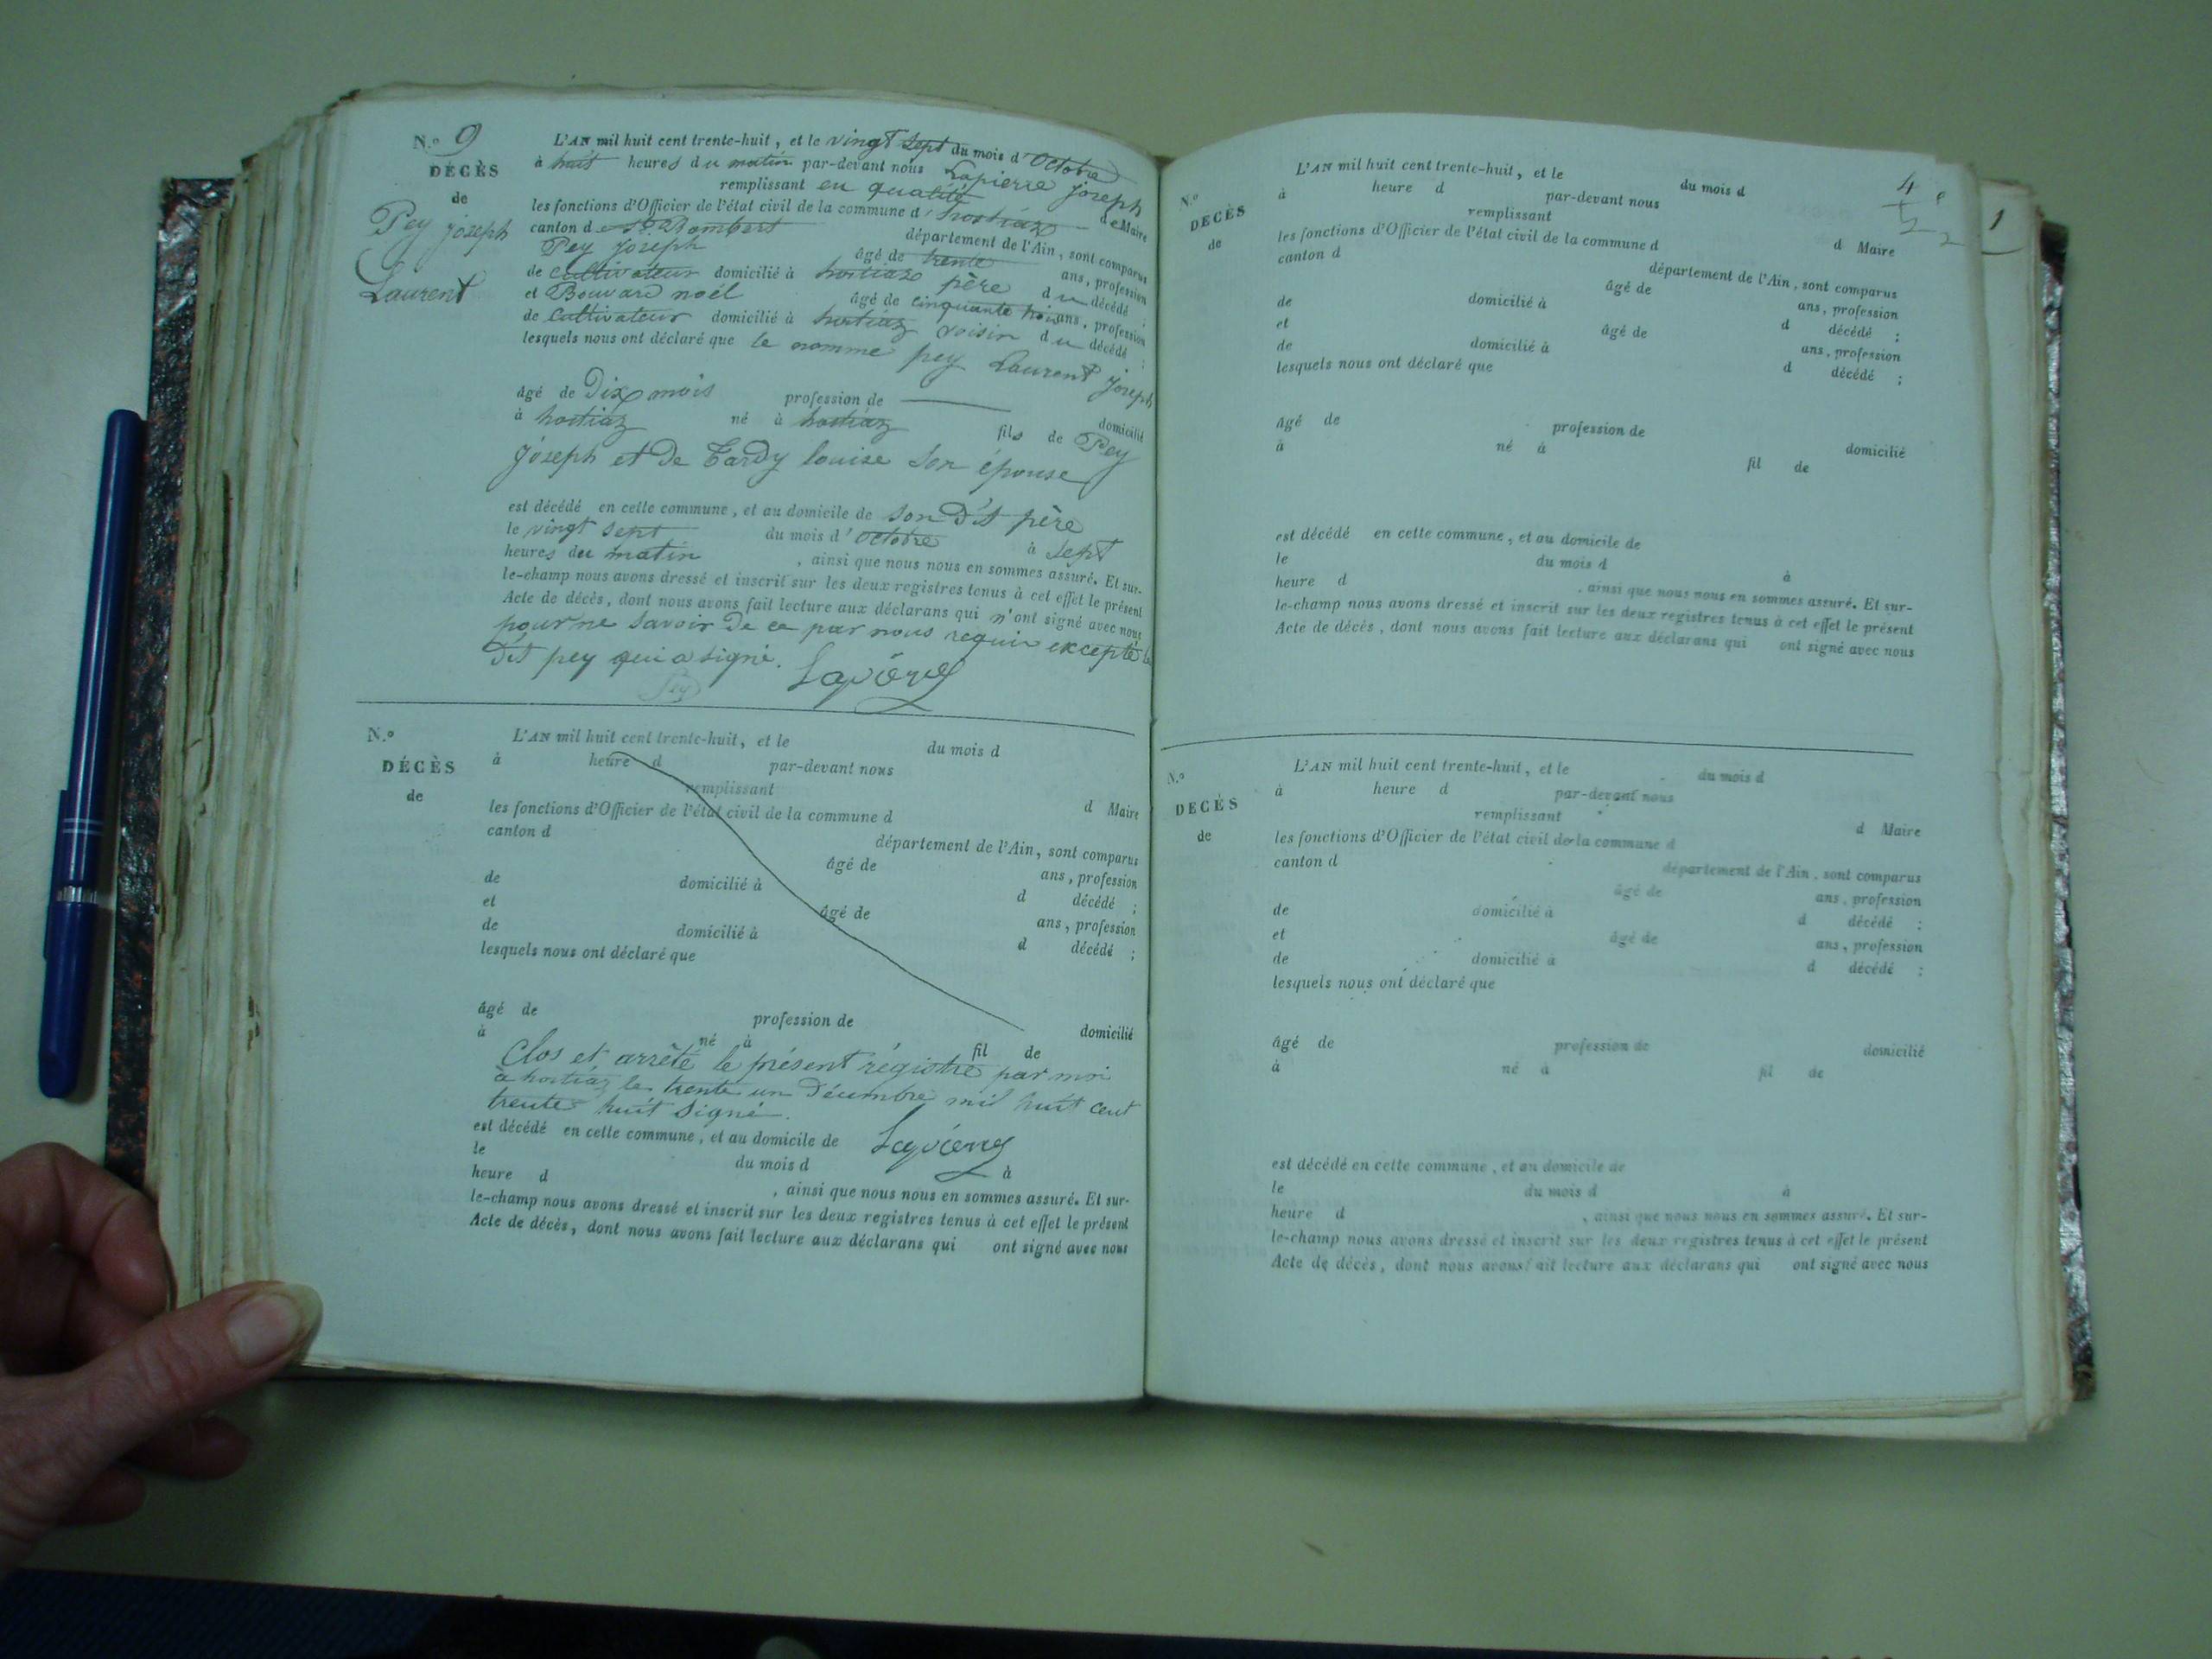 N.º 9
DÉCÈS
de
Pey joseph
Laurent
L'AN mil huit cent trente-huit, et le vingt sept du mois d'Octobre
à huit heures du matin par-devant nous Lapierre joseph
remplissant en qualité de Maire
les fonctions d'Officier de l'état civil de la commune d'hostiaz
canton de St. Rambert département de l'Ain, sont comparus
Pey joseph âgé de trente ans, profession
de cultivateur domicilié à hostiaz père du décédé ;
et Bouvard noël âgé de cinquante trois ans, profession
de cultivateur domicilié à hostiaz voisin du décédé ;
lesquels nous ont déclaré que le nomme pey Laurent joseph
âgé de Dix mois profession de — domicilié
à hostiaz né à hostiaz fils de Pey
joseph et de Tardy louise son épouse
est décédé en cette commune, et au domicile de son dit père
le vingt sept du mois d'octobre à sept
heures du matin , ainsi que nous nous en sommes assuré. Et sur-
le-champ nous avons dressé et inscrit sur les deux registres tenus à cet effet le présent
Acte de décès, dont nous avons fait lecture aux déclarans qui n'ont signé avec nous
pour ne savoir de ce par nous requis excepté le
dit pey qui a signé. Lapierre
Pey
N.º
DÉCÈS
de
L'AN mil huit cent trente-huit, et le du mois d
à heure d par-devant nous
remplissant d Maire
les fonctions d'Officier de l'état civil de la commune d
canton d département de l'Ain, sont comparus
âgé de ans, profession
de domicilié à d décédé ;
et âgé de ans, profession
de domicilié à d décédé ;
lesquels nous ont déclaré que
âgé de profession de domicilié
à né à fil de
Clos et arrêté le présent régistre par moi
à hostiaz le trente un Décembre mil huit cent
trente huit signé.
Lapierre
est décédé en cette commune, et au domicile de
le du mois d à
heure d , ainsi que nous nous en sommes assuré. Et sur-
le-champ nous avons dressé et inscrit sur les deux registres tenus à cet effet le présent
Acte de décès, dont nous avons fait lecture aux déclarans qui ont signé avec nous
4e
2
1
N.º
DÉCÈS
de
L'AN mil huit cent trente-huit, et le du mois d
à heure d par-devant nous
remplissant d Maire
les fonctions d'Officier de l'état civil de la commune d
canton d département de l'Ain, sont comparus
âgé de ans, profession
de domicilié à d décédé ;
et âgé de ans, profession
de domicilié à d décédé ;
lesquels nous ont déclaré que
âgé de profession de domicilié
à né à fil de
est décédé en cette commune, et au domicile de
le du mois d à
heure d , ainsi que nous nous en sommes assuré. Et sur-
le-champ nous avons dressé et inscrit sur les deux registres tenus à cet effet le présent
Acte de décès, dont nous avons fait lecture aux déclarans qui ont signé avec nous
N.º
DÉCÈS
de
L'AN mil huit cent trente-huit, et le du mois d
à heure d par-devant nous
remplissant d Maire
les fonctions d'Officier de l'état civil de la commune d
canton d département de l'Ain, sont comparus
âgé de ans, profession
de domicilié à d décédé ;
et âgé de ans, profession
de domicilié à d décédé ;
lesquels nous ont déclaré que
âgé de profession de domicilié
à né à fil de
est décédé en cette commune, et au domicile de
le du mois d à
heure d , ainsi que nous nous en sommes assuré. Et sur-
le-champ nous avons dressé et inscrit sur les deux registres tenus à cet effet le présent
Acte de décès, dont nous avons fait lecture aux déclarans qui ont signé avec nous